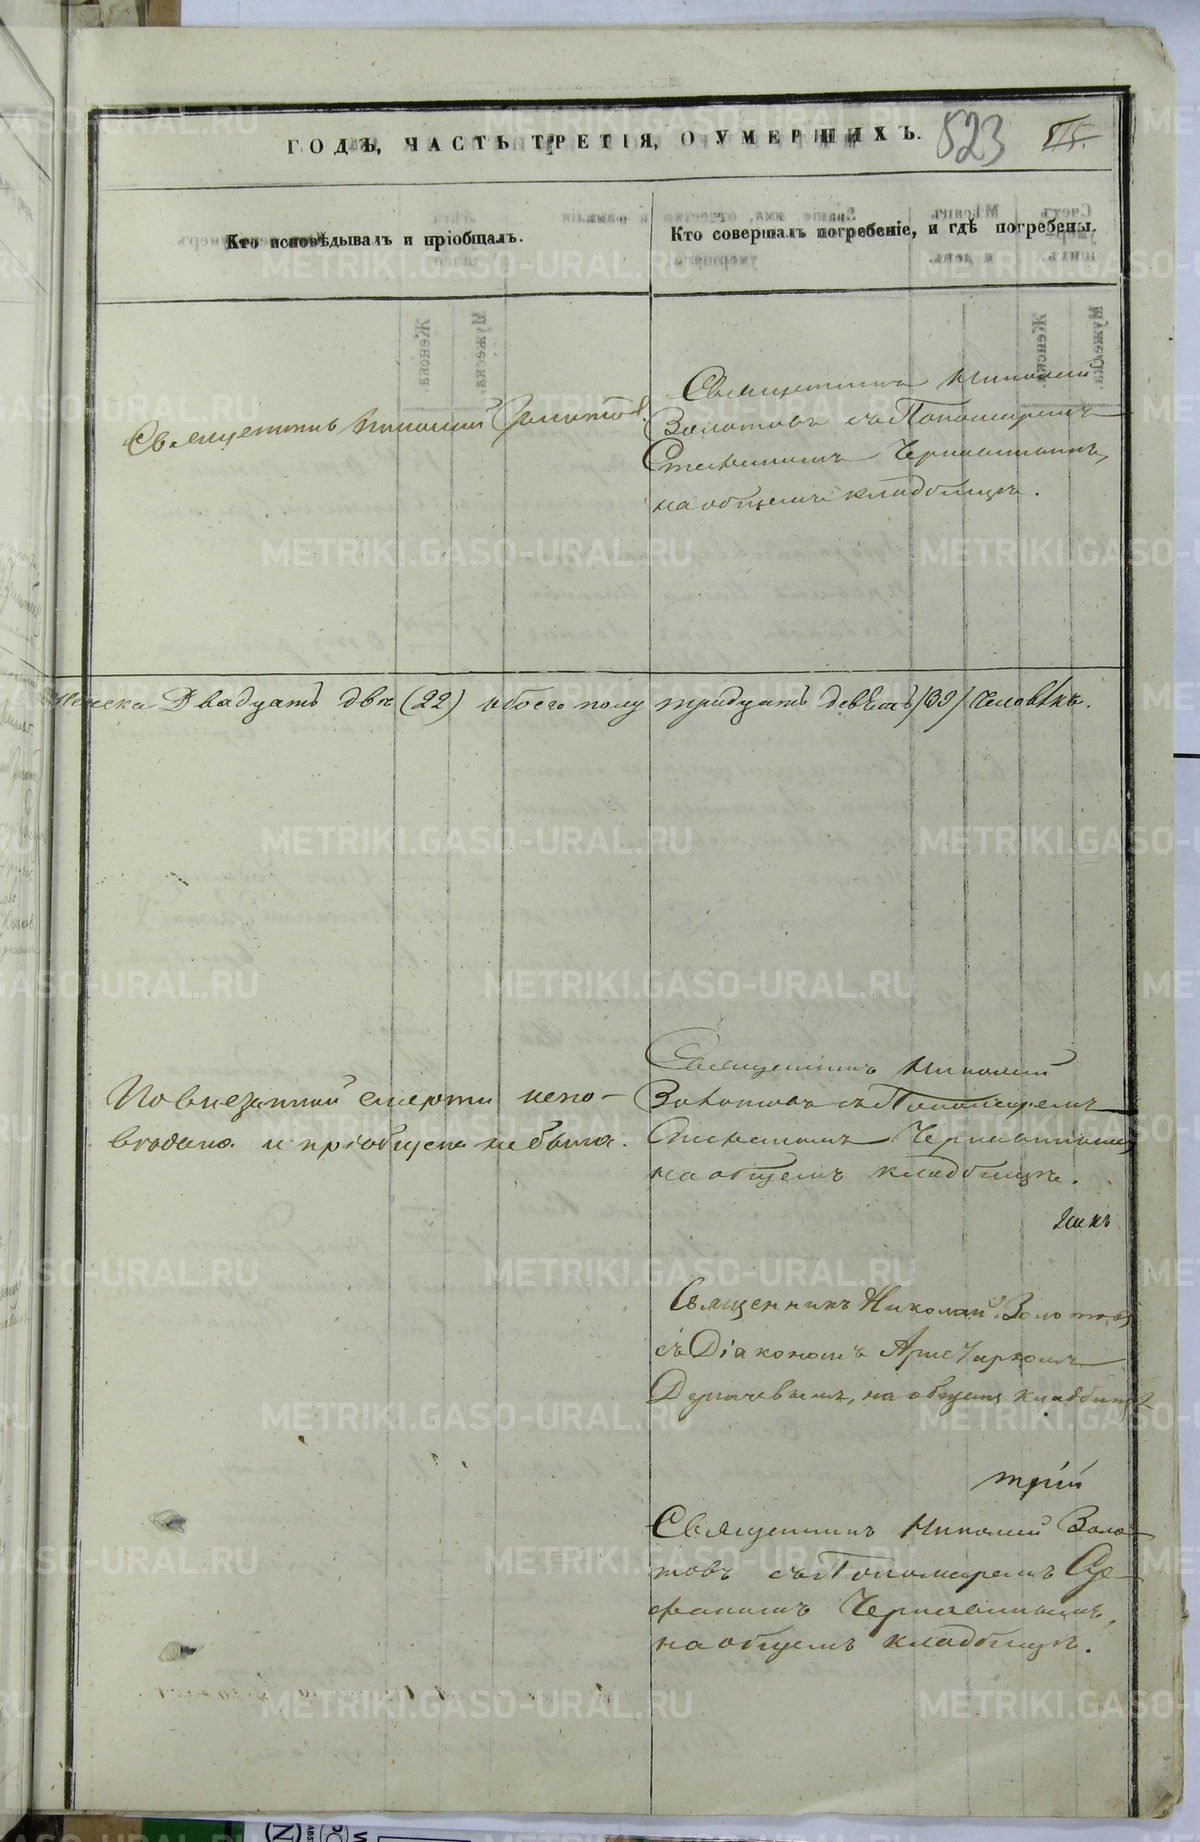 ГОДЪ, ЧАСТЬ ТРЕТІЯ, О УМЕРШИХЪ.
523
Кто исповѣдывалъ и пріобщалъ.
Кто совершалъ погребеніе, и гдѣ погребены.
Священникъ Николай Золотов.
Священникъ Николай
Золотовъ съ Пономаремъ
Стефаномъ Чернавинымъ,
на общемъ кладбищѣ.
женска Двадцать двѣ (22) обоего полу тридцать девѣть (39) Человѣкъ.
По внезапной смерти испо-
вѣдана и пріобщена не была.
Священникъ Николай
Золотовъ съ Пономаремъ
Стефаномъ Чернавинымъ
на общемъ кладбищѣ.
Священникъ Николай Золотовъ
съ Діакономъ Аристархомъ
на общемъ кладбищѣ
трій
Священникъ Николай Золо
товъ съ Пономаремъ Сте
фаномъ Чернавинымъ,
на общемъ кладбищѣ.
METRIKI.GASO-URAL.RU